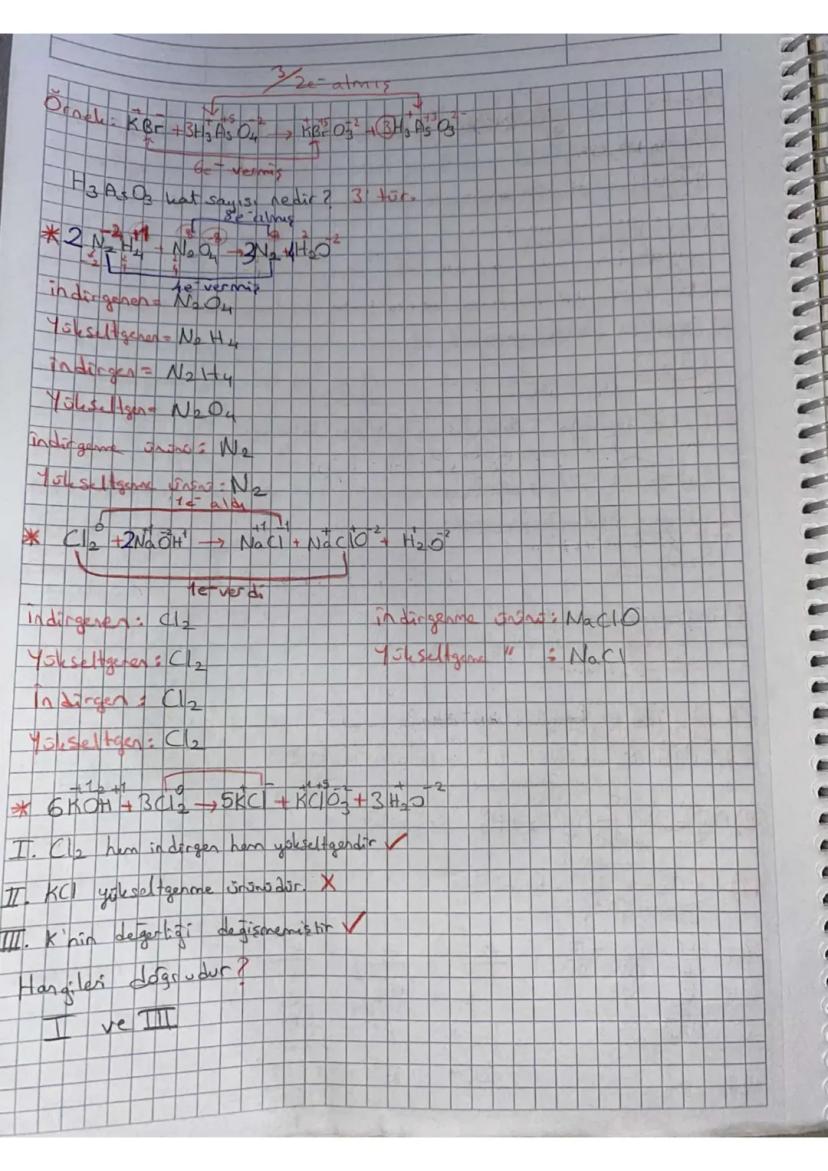 3/2e⁻ almış
Örnek: KBr + 3H₃AsO₄ → KBrO₃ + 3H₃AsO₃
6e⁻ vermiş
H₃AsO₃ kat sayısı nedir? 3'tür.
8e⁻ almış
* 2N₂H₄ + N₂O₄ → 3N₂ + 4H₂O
4e⁻ vermiş
indirgenen = N₂O₄
Yükseltgenen = N₂H₄
indirgen = N₂H₄
Yükseltgen = N₂O₄
indirgenme ürünü: N₂
Yükseltgenme ürünü: N₂
1e⁻ aldı
* Cl₂ + 2NaOH → NaCl + NaClO + H₂O
1e⁻ verdi
indirgenen: Cl₂ indirgenme ürünü: NaClO
Yükseltgenen: Cl₂ Yükseltgenme " : NaCl
İndirgen: Cl₂
Yükseltgen: Cl₂
* 6KOH + 3Cl₂ → 5KCl + KClO₃ + 3H₂O
I. Cl₂ hem indirgen hem yükseltgendir ✓
II. KCl yükseltgenme ürünüdür. X
III. K'nin değerliği değişmemiştir ✓
Hangileri doğrudur?
I ve III